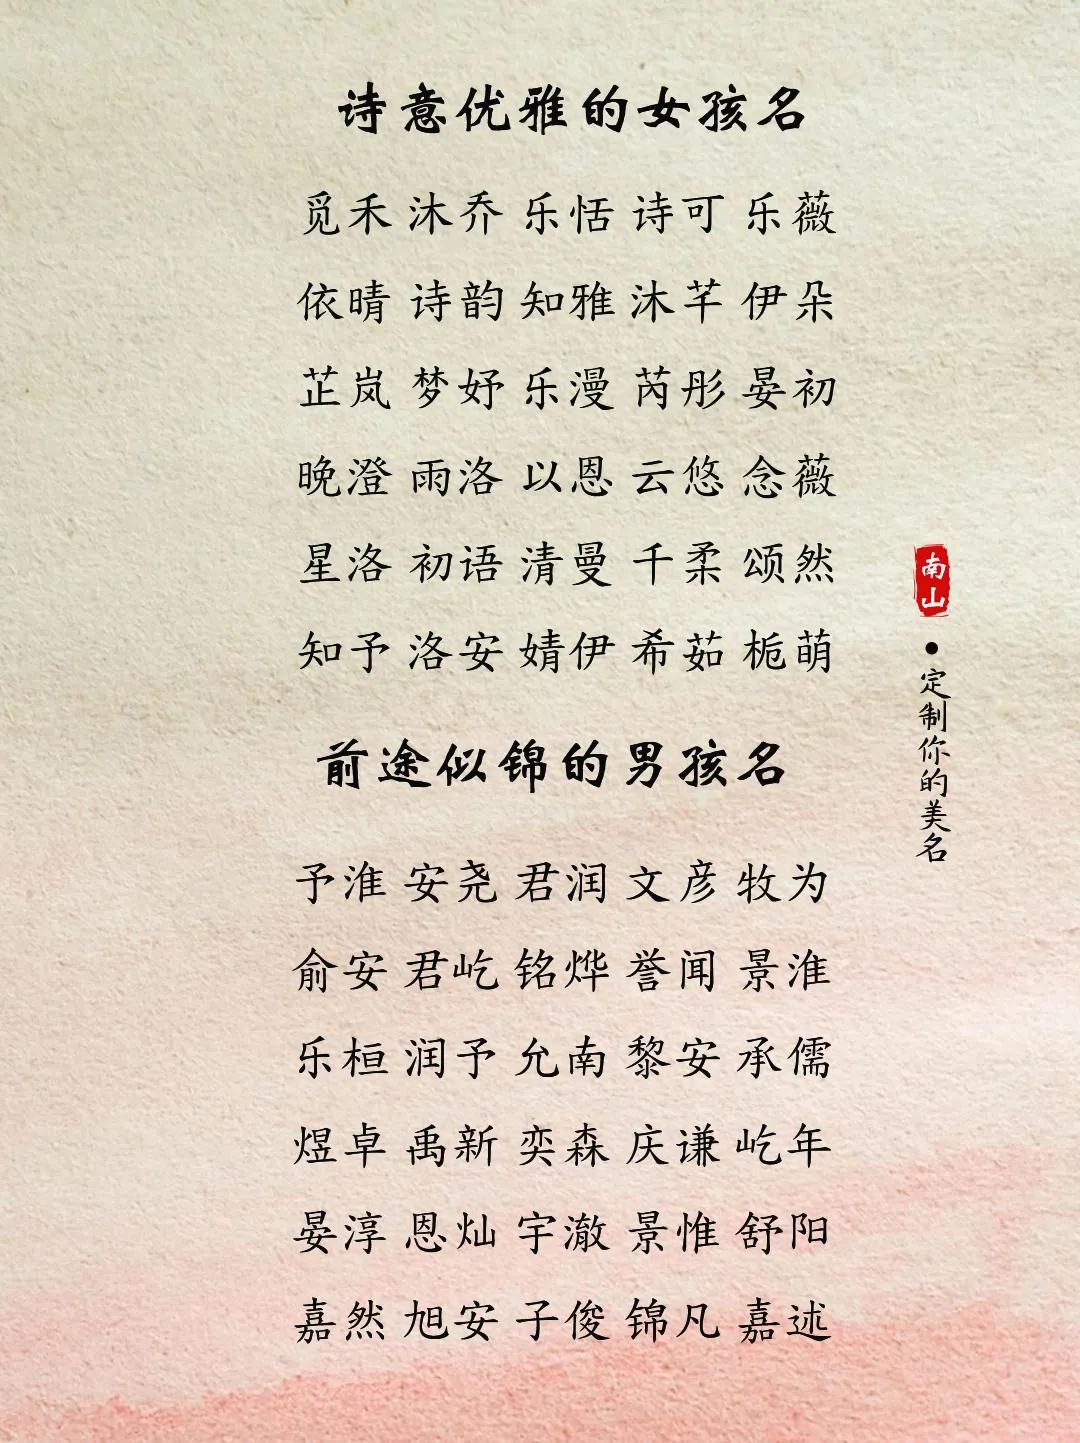 诗意优雅的女孩名
觅禾 沐乔 乐恬 诗可 乐薇
依晴 诗韵 知雅 沐芊 伊朵
芷岚 梦妤 乐漫 芮彤 晏初
晚澄 雨洛 以恩 云悠 念薇
星洛 初语 清曼 千柔 颂然
知予 洛安 婧伊 希茹 栀萌
前途似锦的男孩名
予淮 安尧 君润 文彦 牧为
俞安 君屹 铭烨 誉闻 景淮
乐桓 润予 允南 黎安 承儒
煜卓 禹新 奕森 庆谦 屹年
晏淳 恩灿 宇澈 景惟 舒阳
嘉然 旭安 子俊 锦凡 嘉述
南山
•定制你的美名